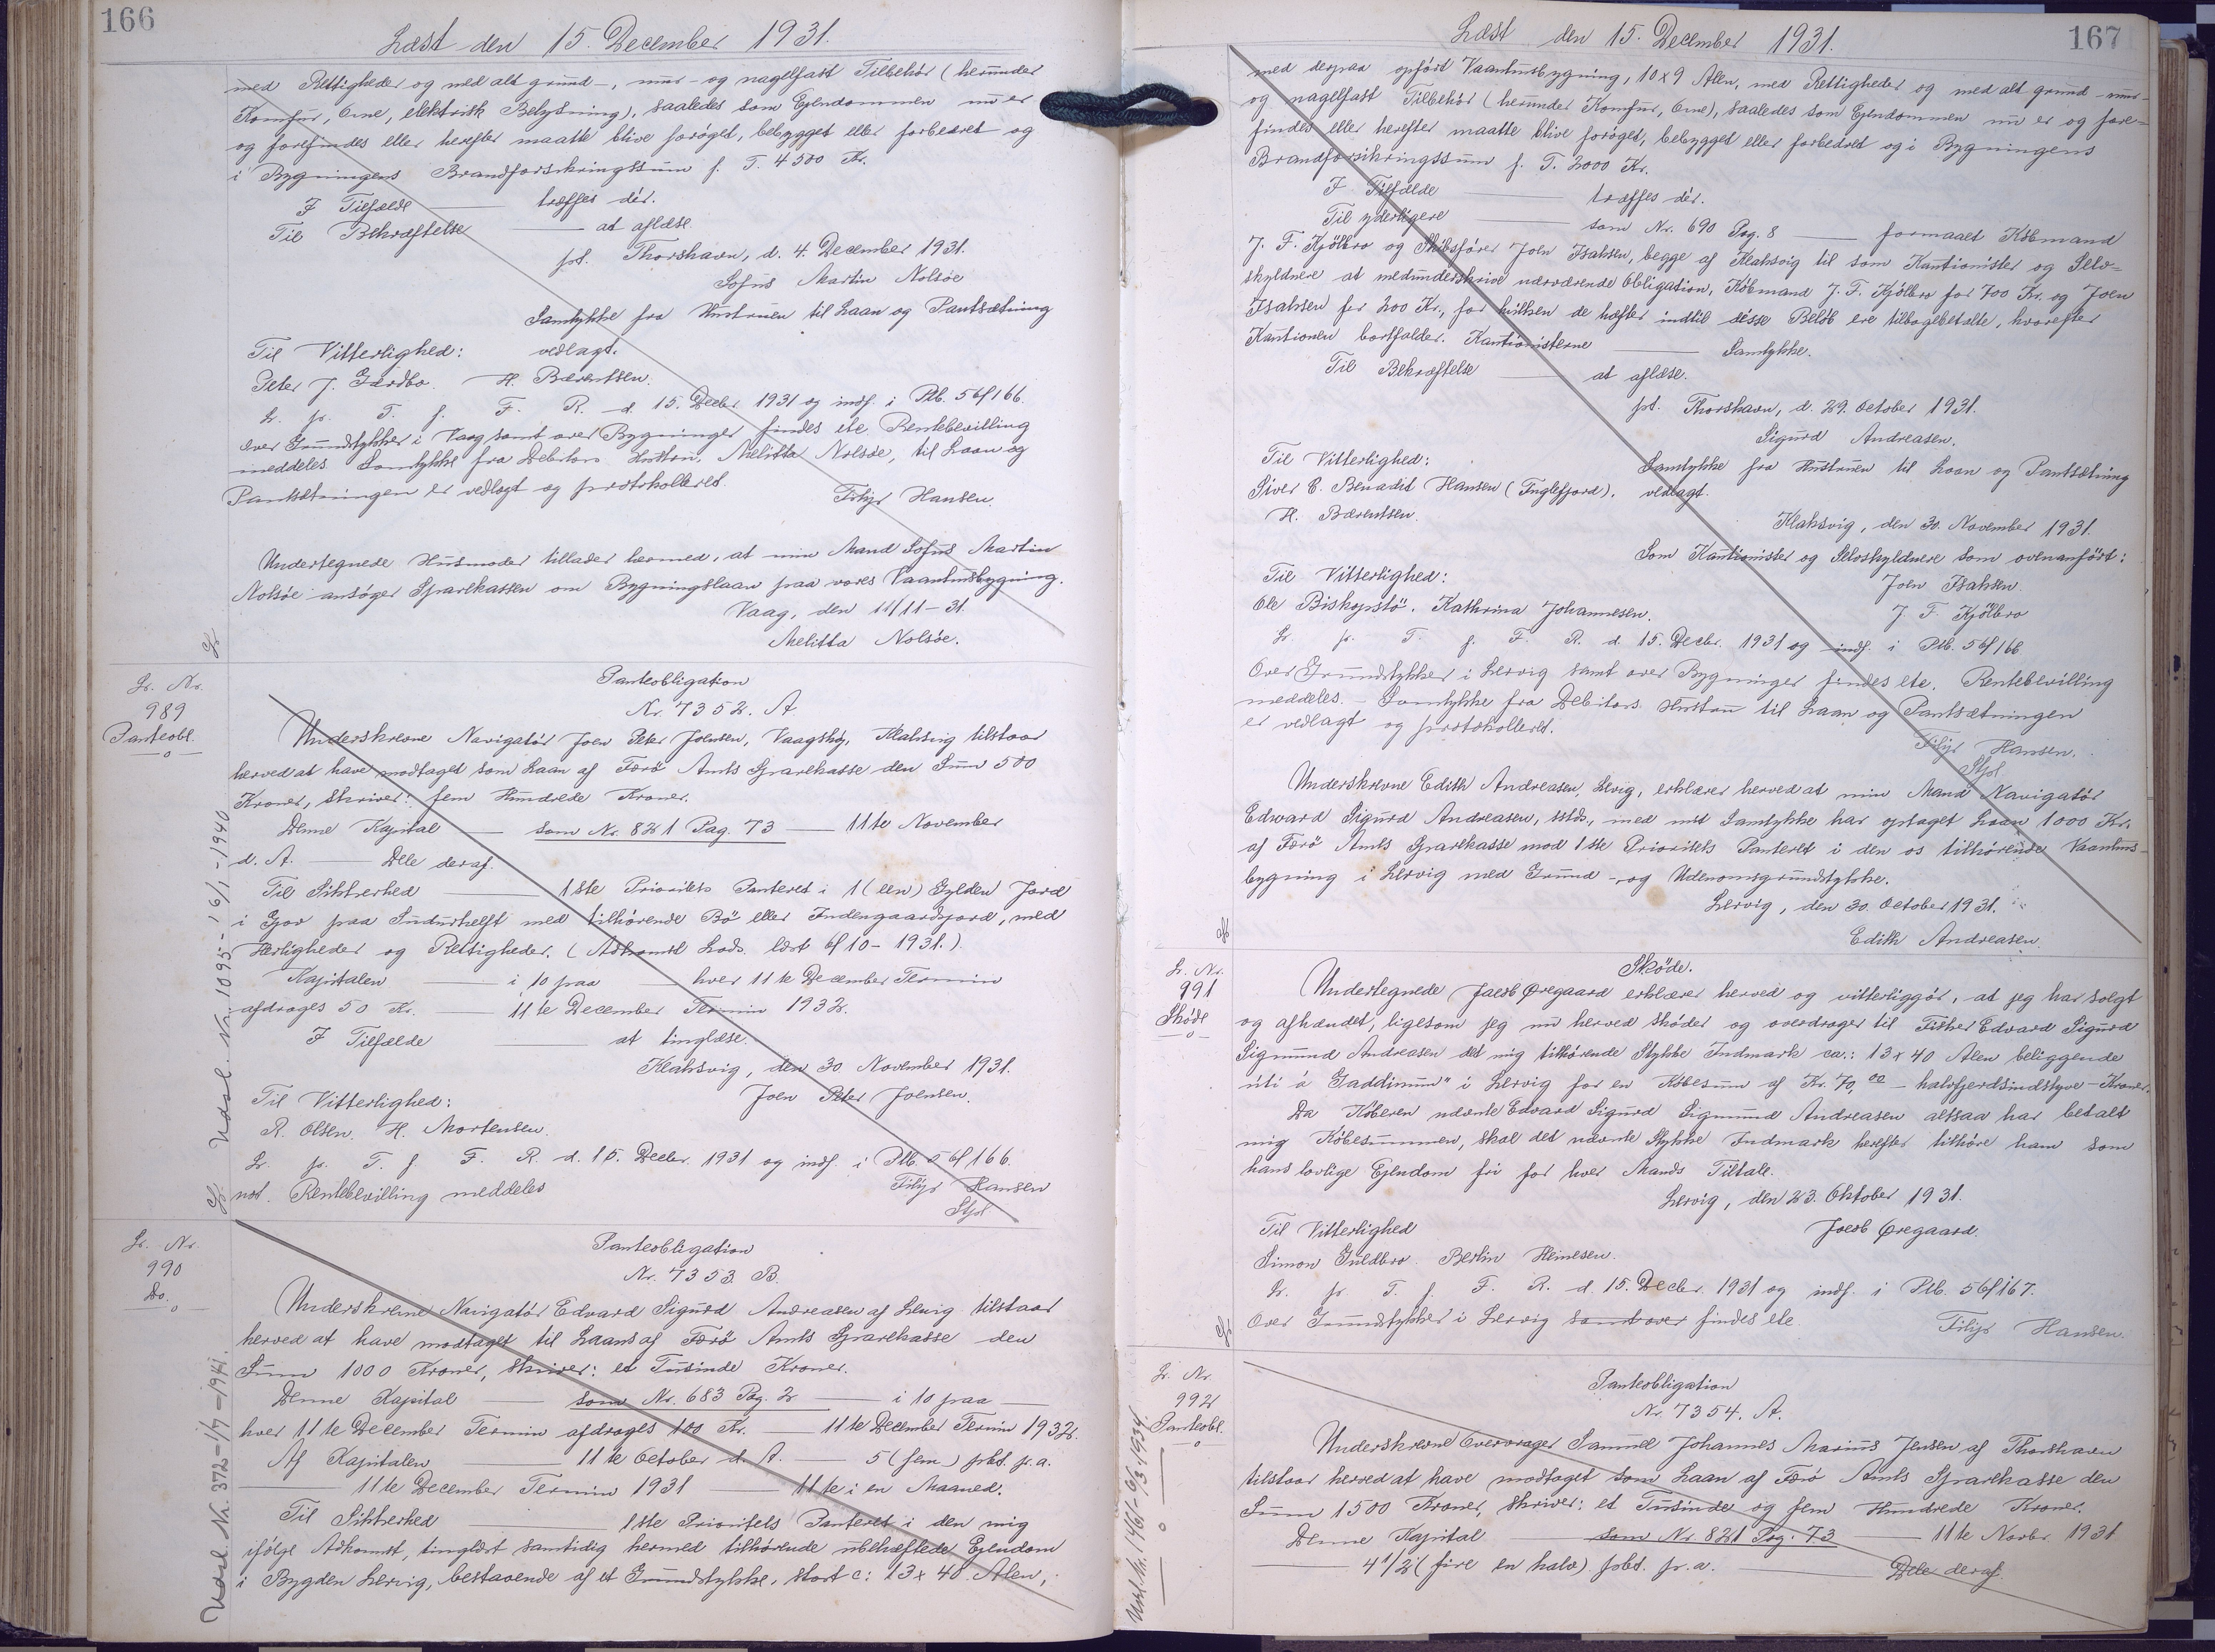 166
Læst den 15. December 1931.
med Rettigheder og med alt grund-, mur- og nagelfast Tilbehör (herunder
Komfur, Ovne, elektrisk Belysning), saaledes som Ejendommen nu er
og forefindes eller herefter maatte blive forøget, bebygget eller forbedret og
i Bygningens Brandforsikringssum p. T. 4500 Kr.
I Tilfælde — træffes dèr.
Til Bekræftelse — at aflæse.
pt. Thorshavn, d. 4. December 1931.
Sofus Martin Nolsöe
Samtykke fra Hustruen til Laan og Pantsætning
Til Vitterlighed: vedlagt.
Peter J. Gardbo. H. Bærentsen.
Lr. pr. T. f. F. R. d. 15. Decbr. 1931 og indf. i Ptb. 56f166.
Over Grundstykker i Vaag samt over Bygninger findes ete. Rentebevilling
meddeles. Samtykke fra Debitors Hustru, Melitta Nolsöe, til Laan og
Pantsætningen er vedlagt og protokolleret.
Filip Hansen.
Undertegnede Husmoder tillader hermed, at min Mand Sofus Martin
Nolsöe ansöger Sparekassen om Bygningslaan paa vores Vaaningsbygning.
Vaag, den 11/11-31.
Melitta Nolsöe.
Lr. Nr.
989
Panteobl.
Panteobligation
Nr. 7352. A.
Underskrevne Navigatör Joen Peter Joensen, Vaagshg, Klaksvig tilstaar
herved at have modtaget som Laan af Færö Amts Sparekasse den Sum 500
Kroner, skriver: fem Hundrede Kroner.
Denne Kapital — som Nr. 821 Pag. 73 — 11te November
d. A. — Dele deraf.
Til Sikkerhed — 1ste Prioritets Panteret i 1 (een) Gylden Jord
i Gjov paa Sudurhelft med tilhörende Bö eller Indengaardsjord, med
Herligheder og Rettigheder. (Adkomst Lods. læst 6/10-1931.)
Kapitalen — i 10 paa — hver 11te December Termin
afdrages 50 Kr. — 11te December Termin 1932.
I Tilfælde — at tinglæse.
Klaksvig, den 30 November 1931.
Til Vitterlighed: Joen Peter Joensen.
R. Olsen. H. Mortensen.
Lr. pr. T. f. F. R. d. 15. Decbr. 1931 og indf. i Ptb. 56f166.
not. Rentebevilling meddeles
Filip Hansen
Stpl
Udsl. Nr. 1095-16/1-1940
Lr. Nr.
990
Do.
Panteobligation
Nr. 7353. B.
Underskrevne Navigatör Edvard Sigurd Andreasen af Lervig tilstaar
herved at have modtaget til Laans af Færö Amts Sparekasse den
Sum 1000 Kroner, skriver: et Tusinde Kroner.
Denne Kapital — som Nr. 683 Pag. 2 — i 10 paa
hver 11te December Termin afdrages 100 Kr. — 11te December Termin 1932.
Af Kapitalen — 11te October d. A. — 5 (fem) pCt. p.a.
— 11te December Termin 1931 — 11te i en Maaned.
Til Sikkerhed — 1ste Prioritets Panteret i den mig
ifølge Adkomst, tinglæst samtidig hermed tilhörende ubehæftede Ejendom
i Bygden Lervig, bestaaende af et Grundstykke, stort c: 13 x 40 Alen,
Udsl. Nr. 372-1/7-1941.
167
Læst den 15. December 1931.
med derpaa opfört Vaaningsbygning, 10x9 Alen, med Rettigheder og med alt grund- mur-
og nagelfast Tilbehör (herunder Komfur, Ovne), saaledes som Ejendommen nu er og fore-
findes eller herefter maatte blive forøget, bebygget eller forbedret og i Bygningens
Brandforsikringssum p. T. 2000 Kr.
I Tilfælde — træffes dèr.
Til yderligere — som Nr. 690 Pag. 8 — formaaet Köbmand
J. F. Kjölbro og Skibsförer Joen Isaksen, begge af Klaksvig til som Kautionister og Selv-
skyldnere at medunderskrive nærværende Obligation, Köbmand J. F. Kjölbro for 700 Kr. og Joen
Isaksen for 200 Kr., for hvilken de hæfter indtil disse Belöb ere tilbagebetalte, hvorefter
Kautionen bortfalder. Kautionisterne — Samtykke.
Til Bekræftelse — at aflæse.
pt. Thorshavn, d. 29. October 1931.
Sigurd Andreasen.
Til Vitterlighed: Samtykke fra Hustruen til Laan og Pantsætning
Siver E. Benadit Hansen (Fuglefjord). vedlagt.
H. Bærentsen.
Klaksvig, den 30. November 1931.
Som Kautionister og Selvskyldnere som ovenanfört:
Til Vitterlighed: Joen Isaksen
Ole Biskopstö. Kathrina Johannesen. J. F. Kjölbro
Lr. pr. T. f. F. R. d. 15. Decbr. 1931 og indf. i Ptb. 56f166
Over Grundstykker i Lervig samt over Bygninger findes ete. Rentebevilling
meddeles. - Samtykke fra Debitors Hustru til Laan og Pantsætningen
er vedlagt og protokolleret.
Filip Hansen.
Stpl
Underskrevne Edith Andreasen, Lervig, erklærer herved at min Mand Navigatör
Edward Sigurd Andreasen, sstds., med mit Samtykke har optaget Laan 1000 Kr.
af Færö Amts Sparekasse mod 1ste Prioritets Panteret i den os tilhörende Vaanings-
bygning i Lervig med Grund- og Udenomsgrundstykke.
Lervig, den 30. October 1931.
Edith Andreasen.
Lr. Nr.
991
Sköde
Sköde.
Undertegnede Jacob Øregaard erklærer herved og vitterliggör, at jeg har solgt
og afhændet, ligesom jeg nu herved sköder og overdrager til Fisker Edvard Sigurd
Sigmund Andreasen det mig tilhörende Stykke Indmark ca.: 13 x 40 Alen beliggende
úti á Gaddinum" i Lervig for en Köbesum af Kr. 70,00 - halvfjerdsindstyve - Kroner.
Da Köberen nævnte Edvard Sigurd Sigmund Andreasen altsaa har betalt
mig Köbesummen, skal det nævnte Stykke Indmark herefter tilhöre ham som
hans lovlige Ejendom fri for hver Mands Tiltale.
Lervig, den 23. Oktober 1931.
Til Vitterlighed Jacob Øregaard.
Simon Guldbro. Berlin Heinesen.
Lr. pr. T. f. F. R. d. 15. Decbr. 1931 og indf. i Ptb. 56f167.
Over Grundstykker i Lervig samt over findes ete.
Filip Hansen.
Lr. Nr.
992
Panteobl.
Panteobligation
Nr. 7354. A.
Underskrevne Overvrager Samuel Johannes Marius Jensen af Thorshavn
tilstaar herved at have modtaget som Laan af Færö Amts Sparekasse den
Sum 1500 Kroner, skriver: et Tusinde og fem Hundrede Kroner.
Denne Kapital — som Nr. 821 Pag. 73 — 11te Novbr. 1931
— 4 1/2 (fire en halv) pCt. p.a. — Dele deraf.